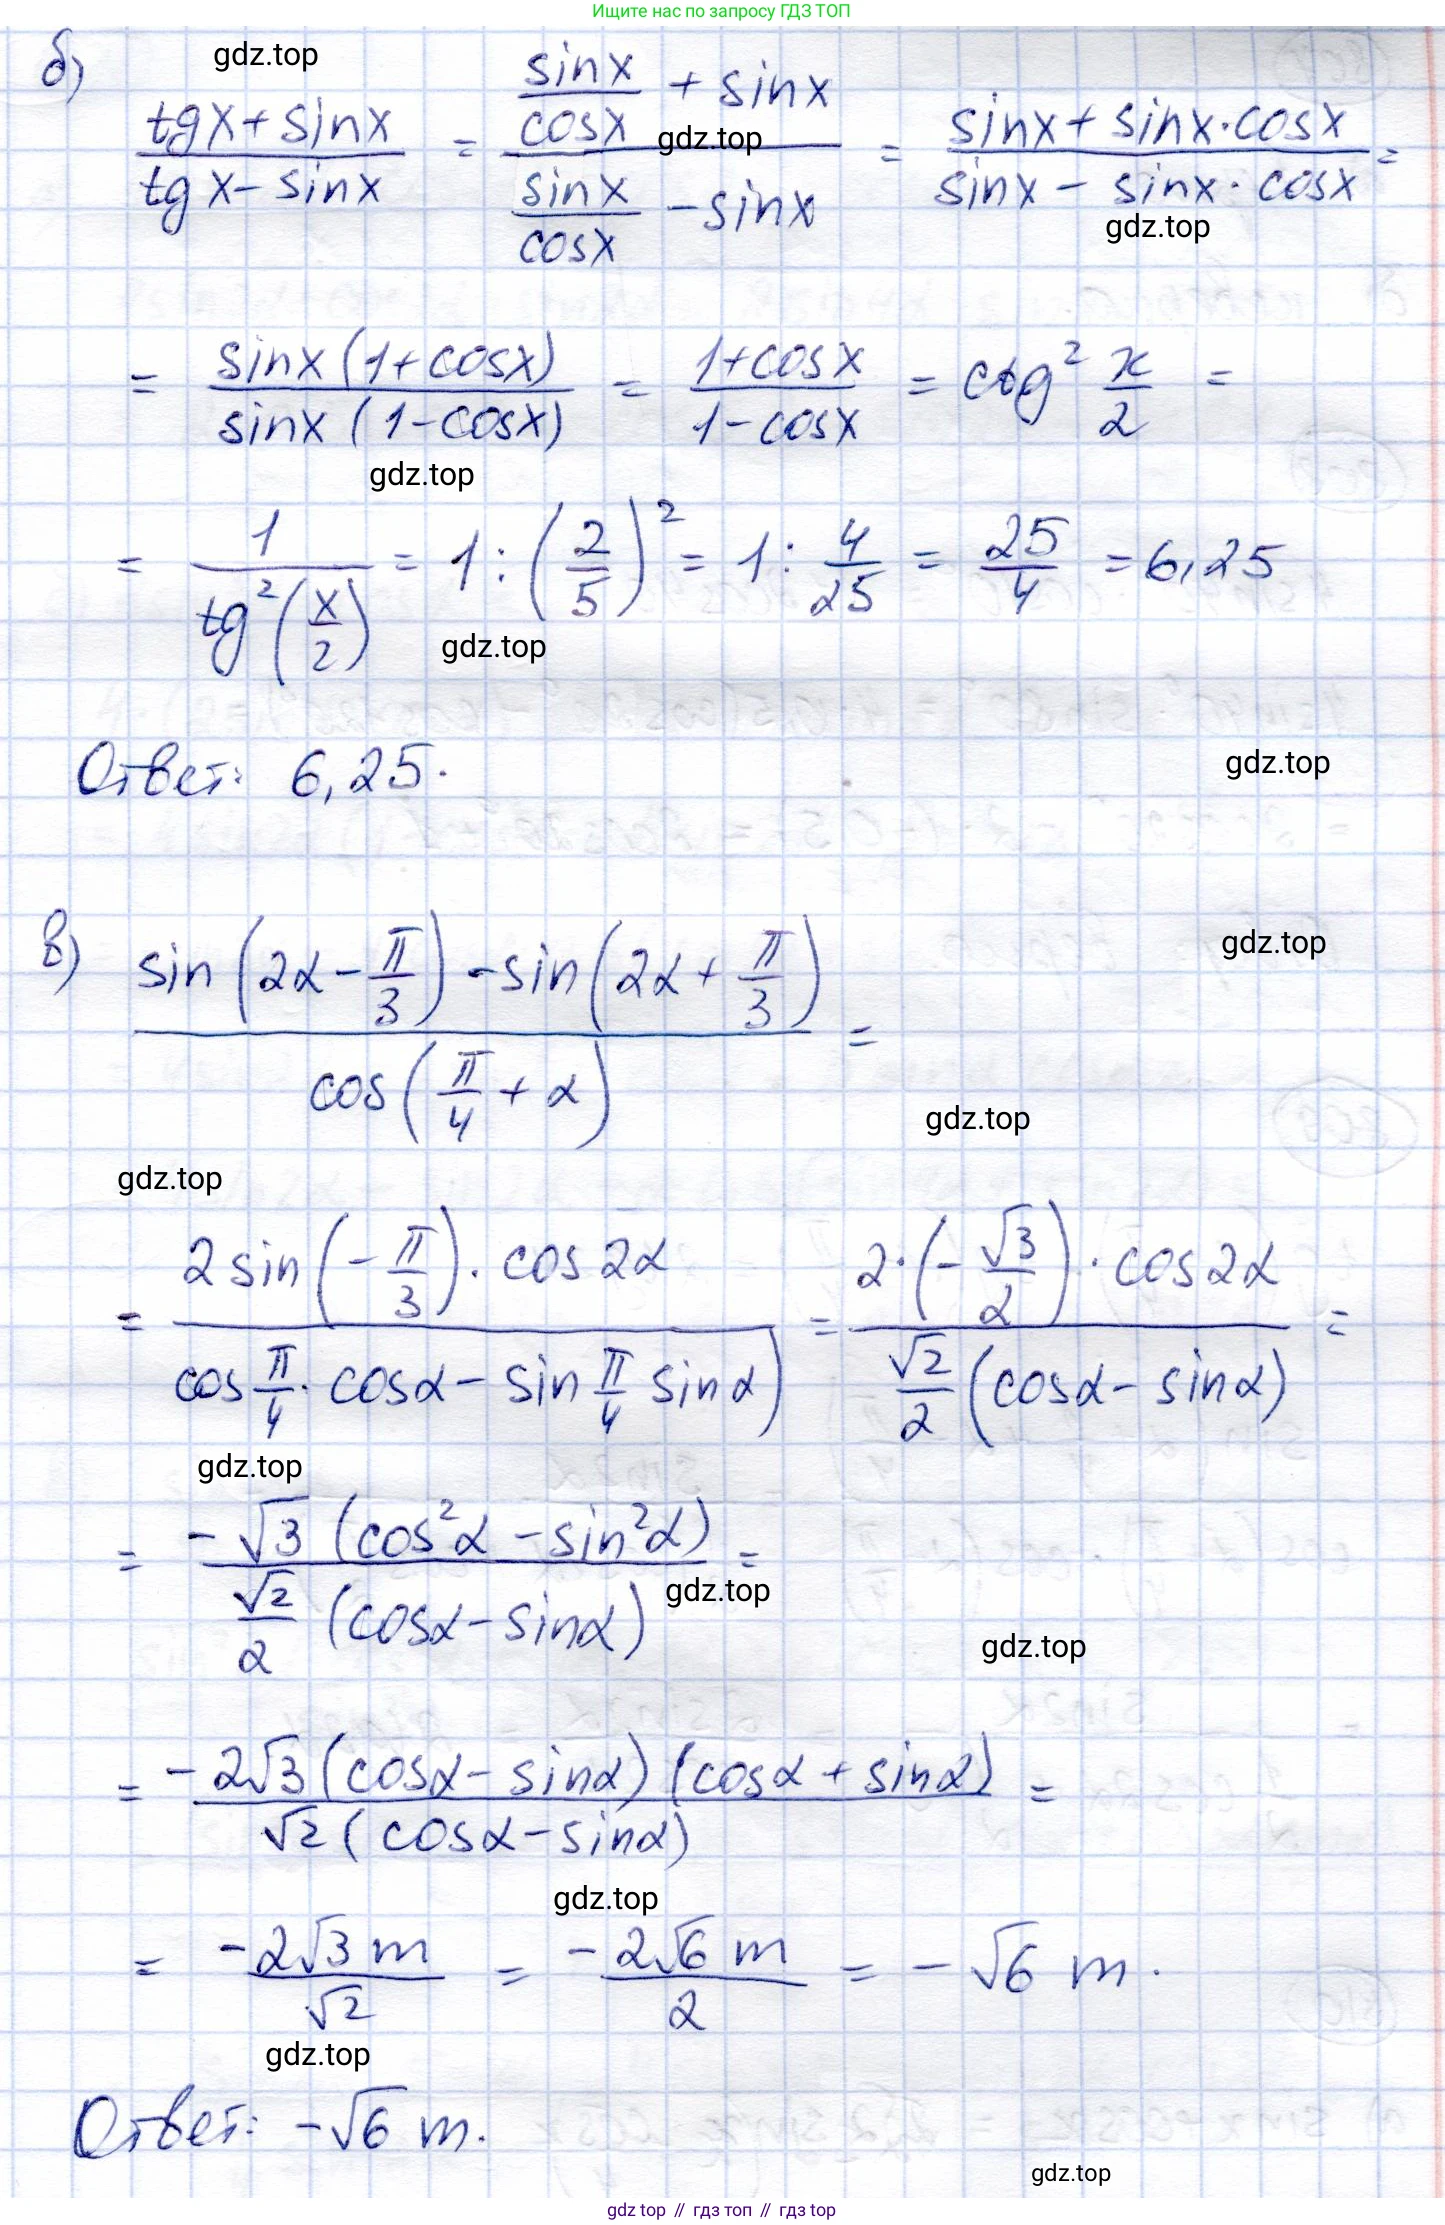 Ищите нас по запросу ГДЗ ТОП
б)
gdz.top
(tgx + sinx)/(tgx - sinx) = (sinx/cosx + sinx)/(sinx/cosx - sinx) = (sinx + sinx·cosx)/(sinx - sinx·cosx) =
gdz.top
gdz.top
= sinx(1+cosx)/sinx(1-cosx) = (1+cosx)/(1-cosx) = ctg² x/2 =
gdz.top
= 1/tg²(x/2) = 1 : (2/5)² = 1 : 4/25 = 25/4 = 6,25
gdz.top
Ответ: 6,25.
gdz.top
в)
gdz.top
(sin(2α - π/3) - sin(2α + π/3))/cos(π/4 + α) =
gdz.top
gdz.top
= (2 sin(-π/3)·cos2α)/(cos π/4 · cosα - sin π/4 sinα) = (2·(-√3/2)·cos2α)/(√2/2 (cosα - sinα)) =
gdz.top
= -√3 (cos²α - sin²α)/(√2/2 (cosα - sinα)) =
gdz.top
gdz.top
= -2√3(cosα - sinα)(cosα + sinα)/√2(cosα - sinα) =
gdz.top
= -2√3 m/√2 = -2√6 m/2 = -√6 m.
gdz.top
Ответ: -√6 m.
gdz.top
gdz top // гдз топ // гдз top